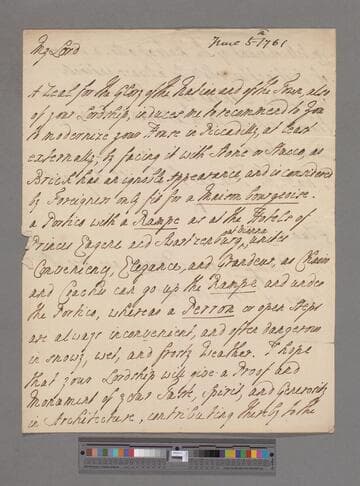 June 5th 1761
My Lord
A Zeal for the Glory of the Nation and of the Town, also
of your Lordship, induces me to recommend to You
to modernize your House in Piccadilly, at least
externally, by facing it with Stone or Stucco, as
Brick has an ignoble Appearance, and is considered
by Foreigners only fit for a Maison bourgeoise.
a Portico with a Rampe as at the Hotels of
Princes Eugene and Swartzenburg at Vienna, unites
Conveniency, Elegance, and Grandeur, as Chairs
and Coaches can go up the Rampe and under
the Portico, whereas a Perron or open Steps
are always inconvenient, and often dangerous
in snowy, wet, and frosty Weather. I hope
that your Lordship will give a Proof and
Monument of your Taste, Spirit, and Generosity
in Architecture, contributing thereby to the